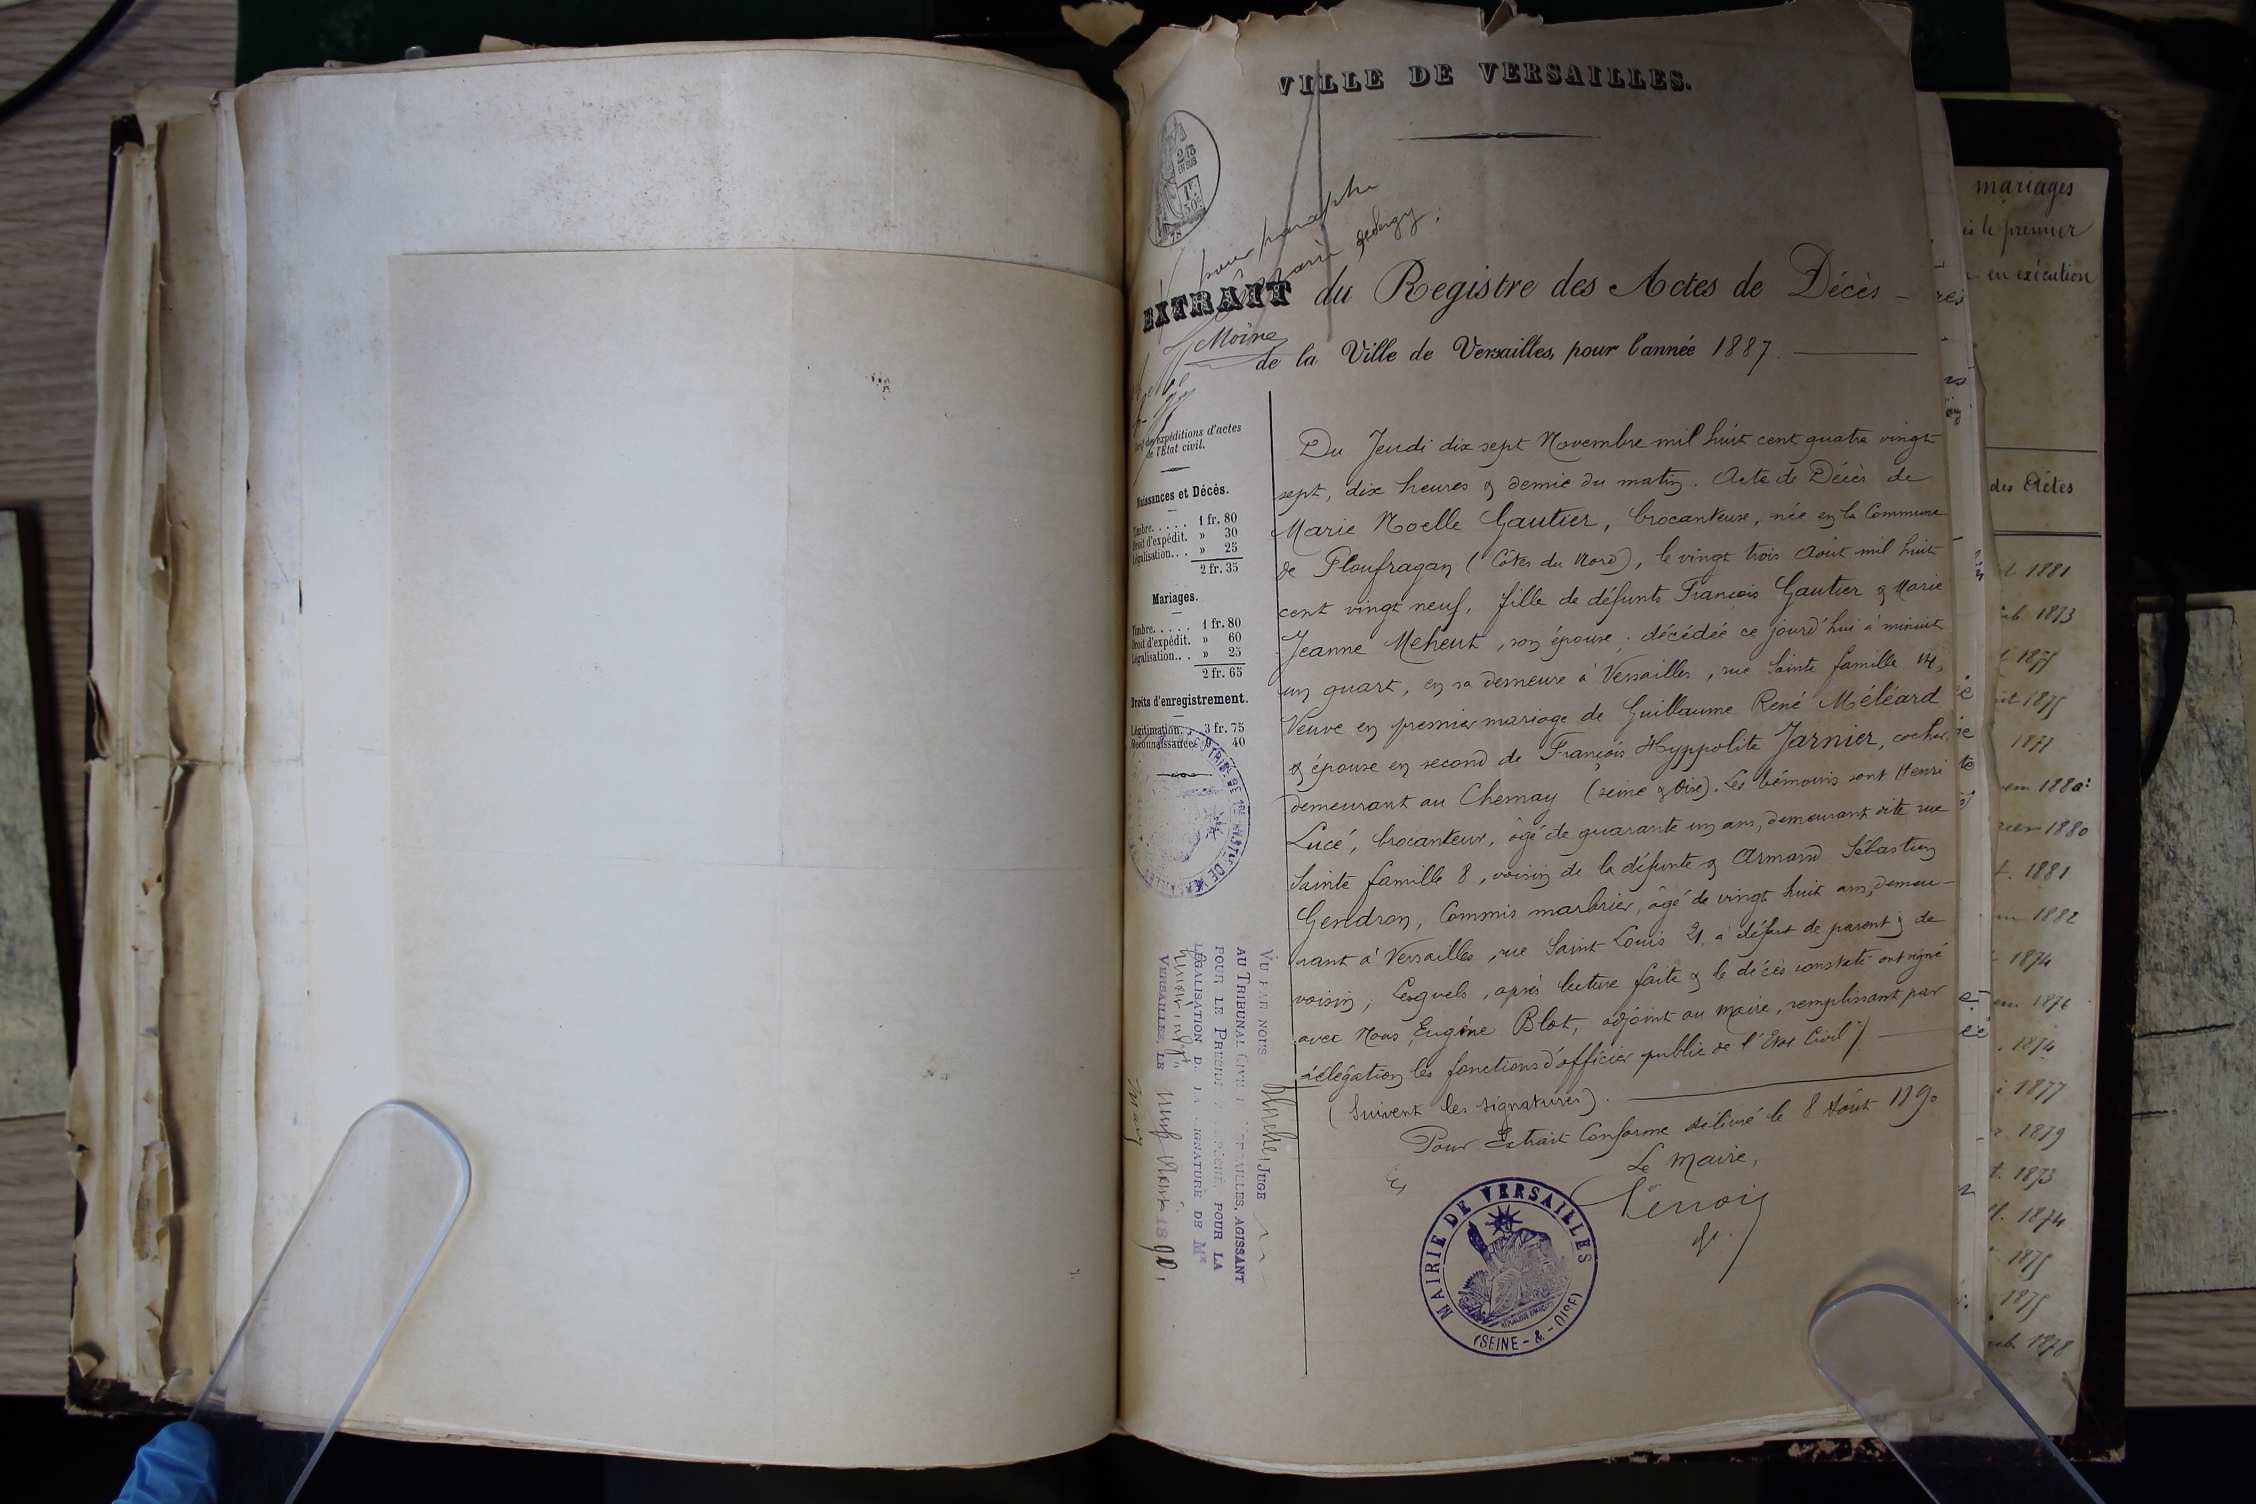 VILLE DE VERSAILLES.
2/10
EN SUS
1F.
50c
pour paraphe
EXTRAIT du Registre des Actes de Décès –
Moine
de la Ville de Versailles, pour l'année 1887.
Tarif des expéditions d'actes
de l'État civil.
Naissances et Décès.
Timbre..... 1 fr. 80
Droit d'expédit. » 30
Légalisation... » 25
2 fr. 35
Mariages.
Timbre..... 1 fr. 80
Droit d'expédit. » 60
Légalisation... » 25
2 fr. 65
Droits d'enregistrement.
Légitimation.. 3 fr. 75
Reconnaissances 9 40
Du Jeudi dix sept Novembre mil huit cent quatre vingt
sept, dix heures & demie du matin. Acte de Décès de
Marie Noelle Gautier, brocanteuse, née en la Commune
de Ploufragan (Côtes du Nord), le vingt trois Août mil huit
cent vingt neuf, fille de défunts François Gautier & Marie
Jeanne Meheut, son épouse; décédée ce jourd'hui à minuit
un quart, en sa demeure à Versailles, rue Sainte famille 14,
Veuve en premier mariage de Guillaume René Méléard
& épouse en second de François Hyppolite Jarnier, cocher,
demeurant au Chesnay (Seine & Oise). Les témoins sont Henri
Lucé, brocanteur, âgé de quarante un ans, demeurant dite rue
Sainte famille 8, voisin de la défunte & Armand Sébastien
Gendron, Commis marbrier, âgé de vingt huit ans, demeu-
rant à Versailles, rue Saint Louis 21, à défaut de parent & de
voisin; Lesquels, après lecture faite & le décès constaté ont signé
avec Nous, Eugène Blot, adjoint au maire, remplissant par
délégation les fonctions d'officier public de l'Etat Civil /.
(Suivent les signatures).
Pour Extrait Conforme délivré le 8 Août 1890
Le Maire,
MAIRIE DE VERSAILLES
RÉPUBLIQUE FRANÇAISE
(SEINE-&-OISE)
TRIB. DE 1RE INST. DE VERSAILLES
VU PAR NOUS JUGE
AU TRIBUNAL CIVIL DE VERSAILLES, AGISSANT
POUR LE PRÉSIDENT EMPÊCHÉ, POUR LA
LÉGALISATION DE LA SIGNATURE DE MR
VERSAILLES, LE neuf Août 1890
mariages
le premier
en exécution
des Actes
1881
1873
1875
1875
1877
1880
1880
1881
1882
1874
1876
1874
1877
1879
1873
1874
1875
1875
1878